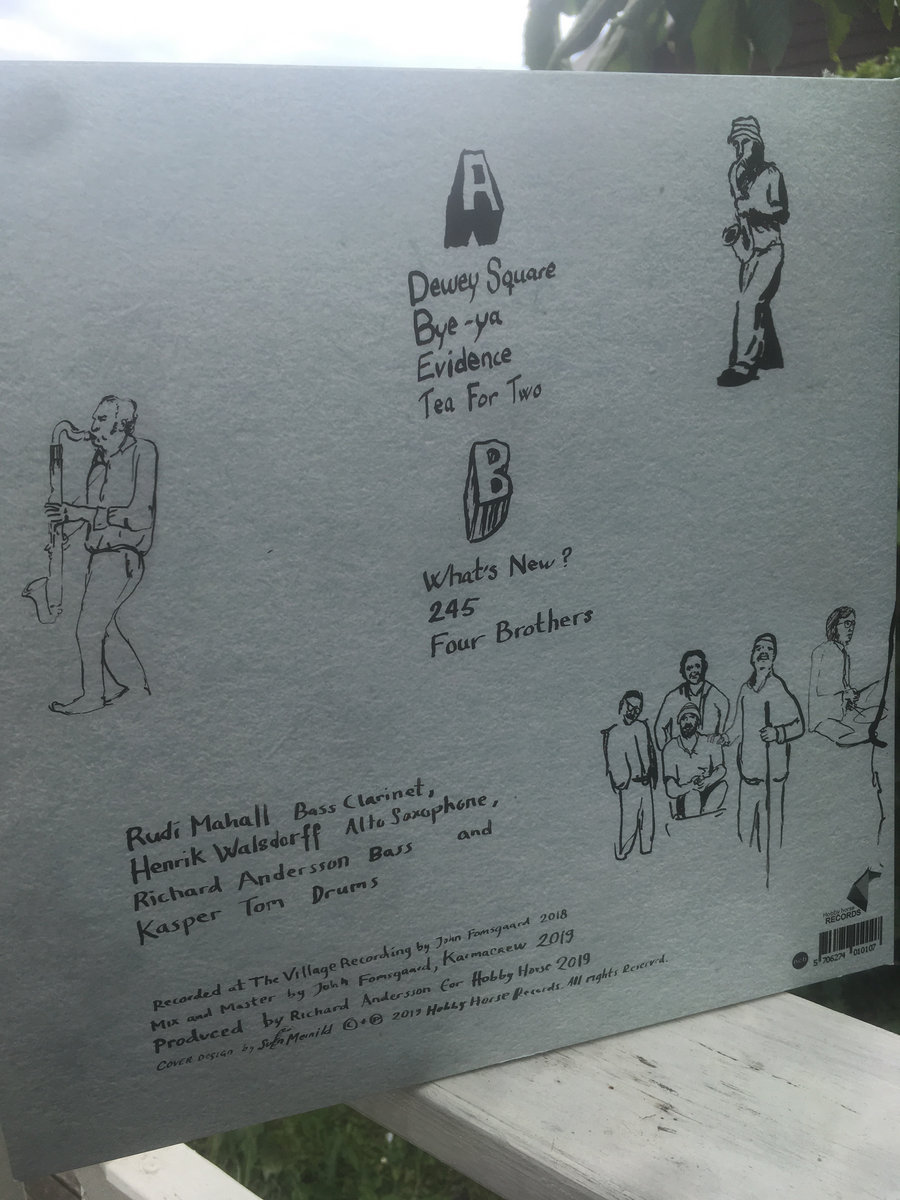 A
Dewey Square
Bye-ya
Evidence
Tea For Two
B
What's New?
245
Four Brothers
Rudi Mahall Bass Clarinet,
Henrik Walsdorff Alto Saxophone,
Richard Andersson Bass and
Kasper Tom Drums
Recorded at The Village Recording by John Fomsgaard 2018
Mix and Master by John Fomsgaard, Karmacrew 2019
Produced by Richard Andersson for Hobby Horse 2019
Cover design by Meinild ©+℗ 2019 Hobby Horse Records. All rights Reserved.
Hobby horse
RECORDS
5 706274 010107